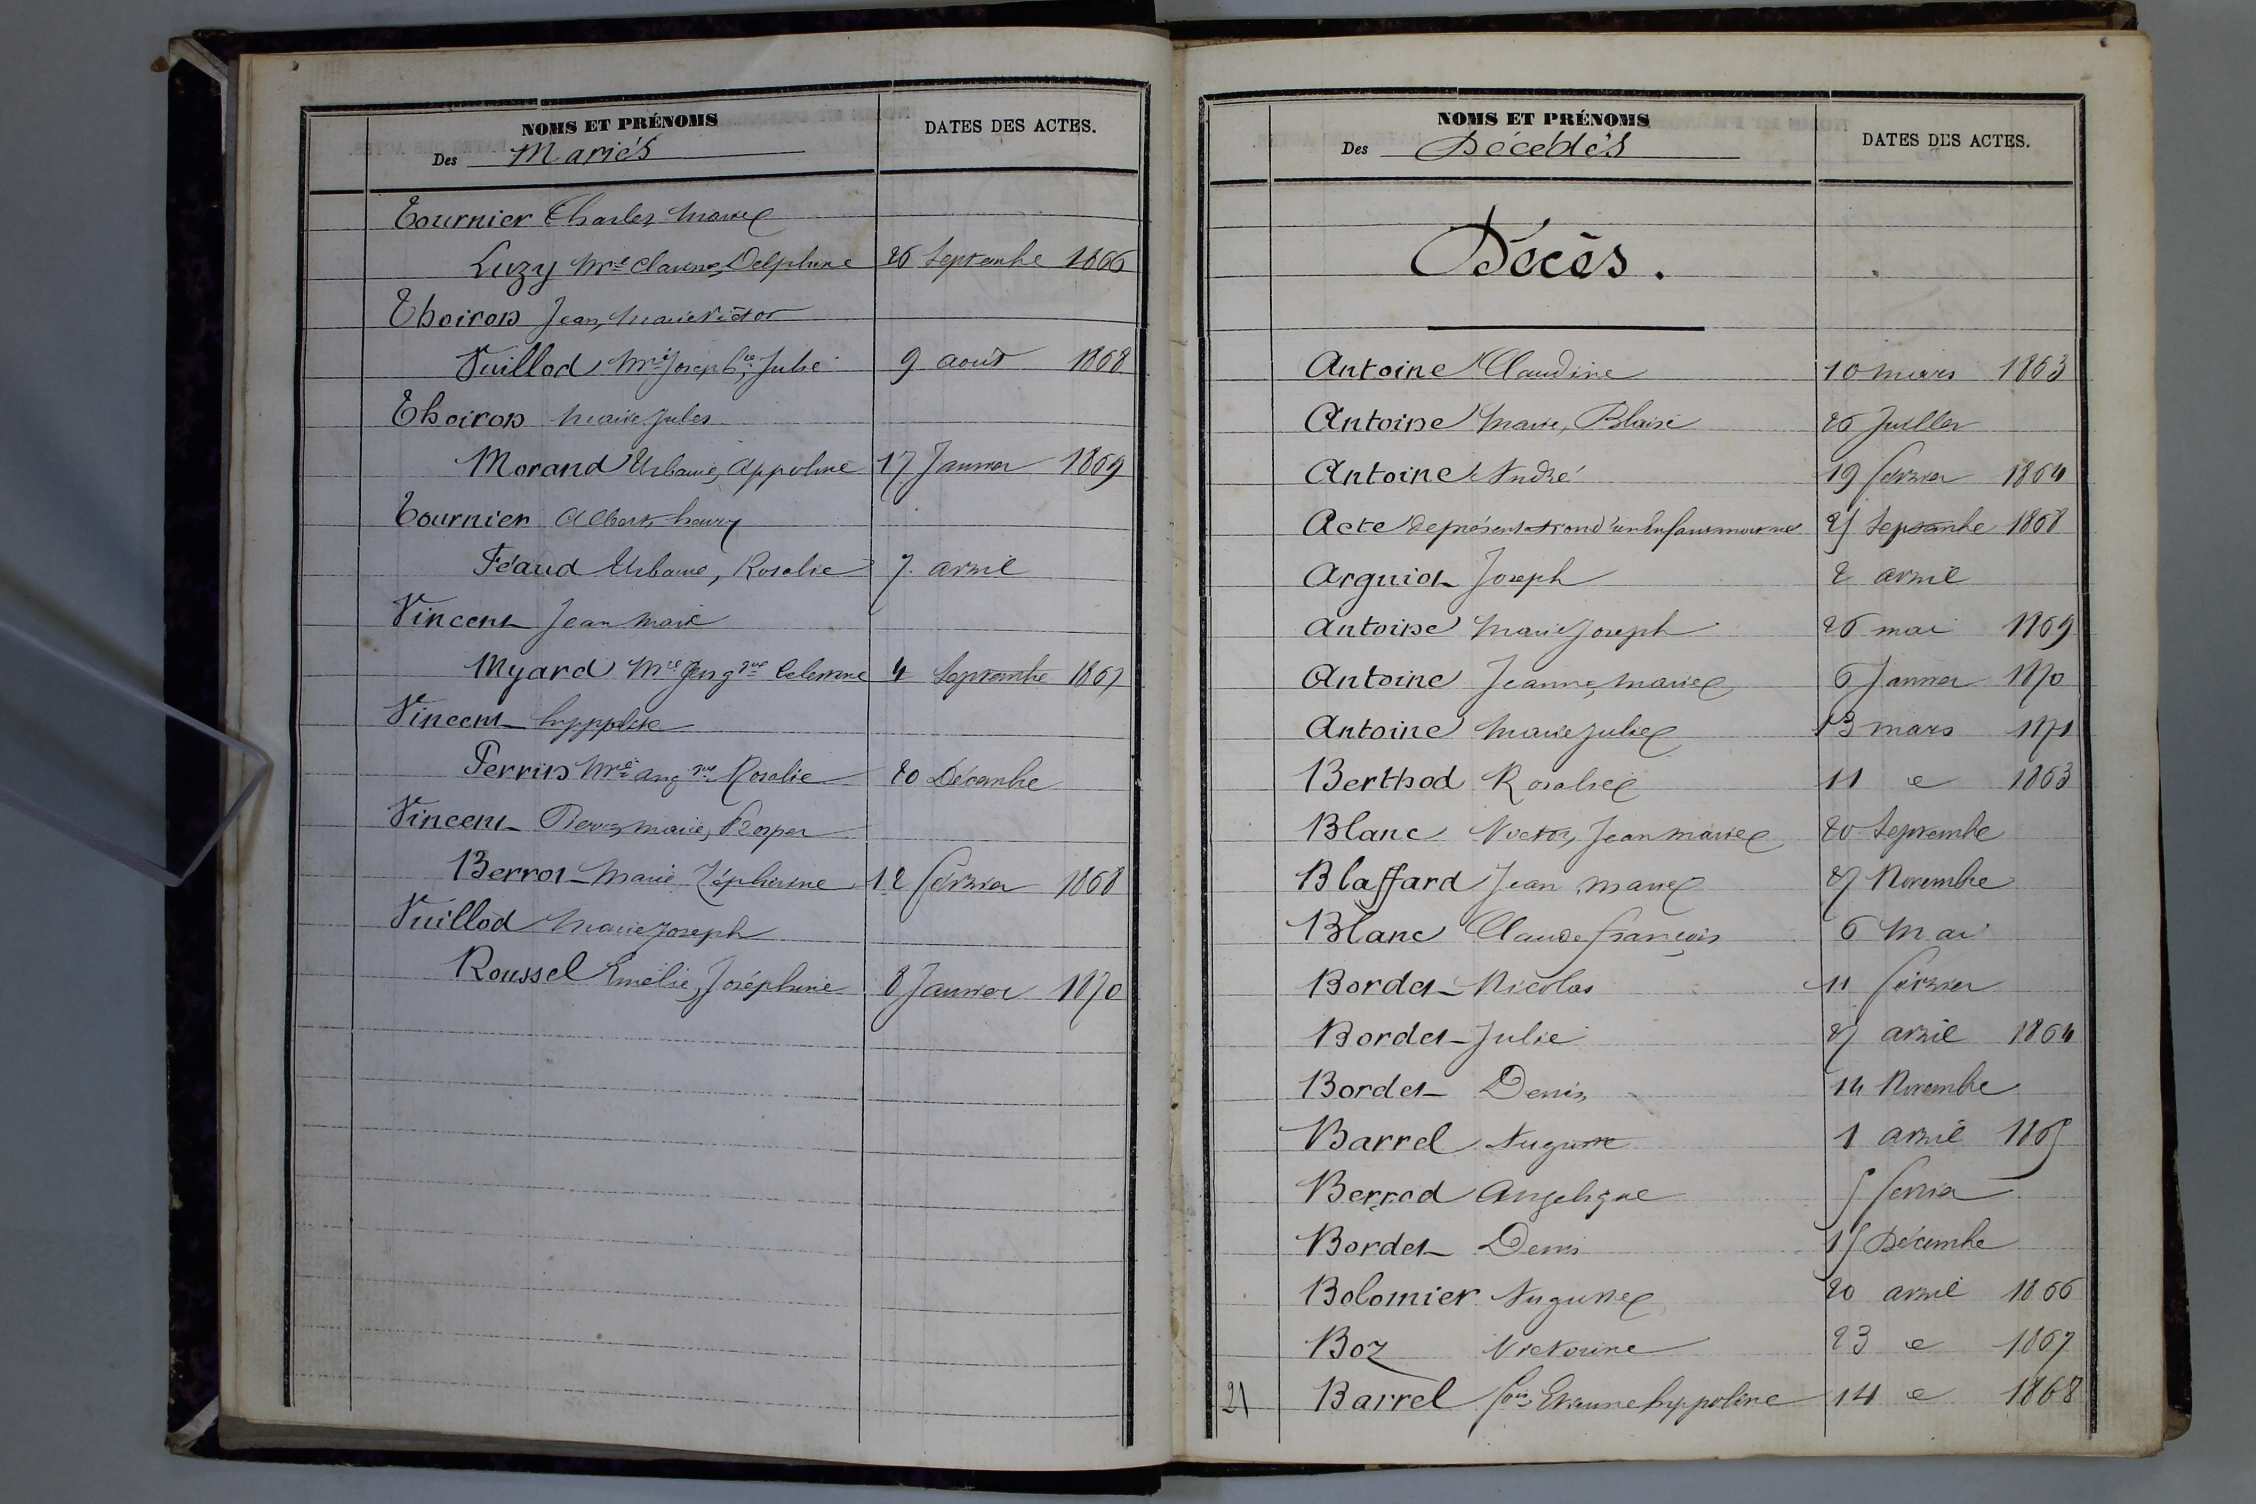 NOMS ET PRÉNOMS
Des Mariés
DATES DES ACTES.
Tournier Charles, Marie
Luzy Mie Clarisse, Delphine 26 Septembre 1866
Thoiron Jean, Marie Victor
Vuillod Mie Josephte, Julie 9 août 1868
Thoiron Marie Jules
Morand Urbanie, Appoline 17 Janvier 1869
Tournier Albert, henry
Féaud Urbanie, Rosalie 7 avril
Vincent Jean Marie
Myard Mie Célestine 4 Septembre 1867
Vincent hyppolite
Perrin Mie Angque Rosalie 20 Décembre
Vincent Pierre, marie, Prosper
Berrot Marie Zéphirine 12 février 1868
Vuillod Marie Joseph
Roussel Emélie, Joséphine 8 Janvier 1870
NOMS ET PRÉNOMS
Des Décédés
DATES DES ACTES.
Décès.
Antoine Claudine 10 mars 1863
Antoine Marie, Blaise 26 Juillet
Antoine André 19 février 1864
Acte de présentation d'un Enfant mort né 25 Septembre 1868
Arguiot Joseph 2 avril
Antoine Marie Joseph 26 mai 1869
Antoine Jeanne, Marie 6 Janvier 1870
Antoine Marie Julie 13 mars 1871
Berthod Rosalie 11 e 1863
Blanc Victor, Jean marie 20 Septembre
Blaffard Jean Marie 27 Novembre
Blanc Claude françois 6 Mai
Bordet Nicolas 11 février
Bordet Julie 27 avril 1864
Bordet Denis 14 Novembre
Barrel Auguste 1 avril 1865
Berrod Angelique 5 février
Bordet Denis 15 Décembre
Bolomier Auguste 20 avril 1866
Boz Victorine 23 e 1867
21 Barrel fois Etienne hyppolite 14 e 1868